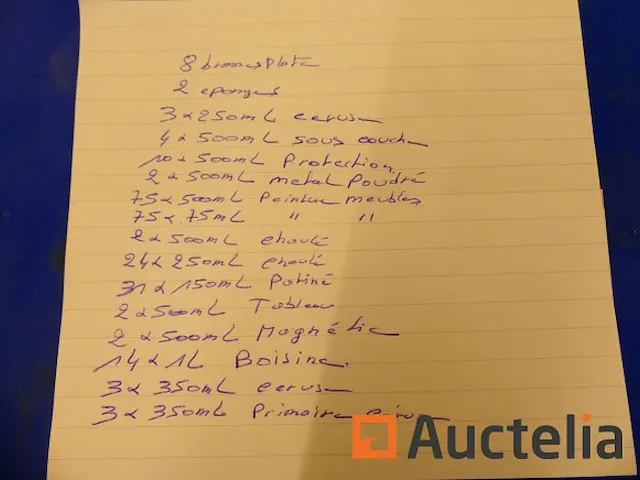 8 brosses Plate
2 eponges
3 x 250mL cerus
4 x 500mL sous couch
10 x 500mL Protection
2 x 500mL metal Poudré
75 x 500mL Peinture meubles
75 x 75mL " "
2 x 500mL
24 x 250mL
31 x 150mL Patiné
2 x 500mL Tableau
2 x 500mL Magnétic
14 x 1L Boisine
3 x 350mL cerus
3 x 350mL Primaire
Auctelia